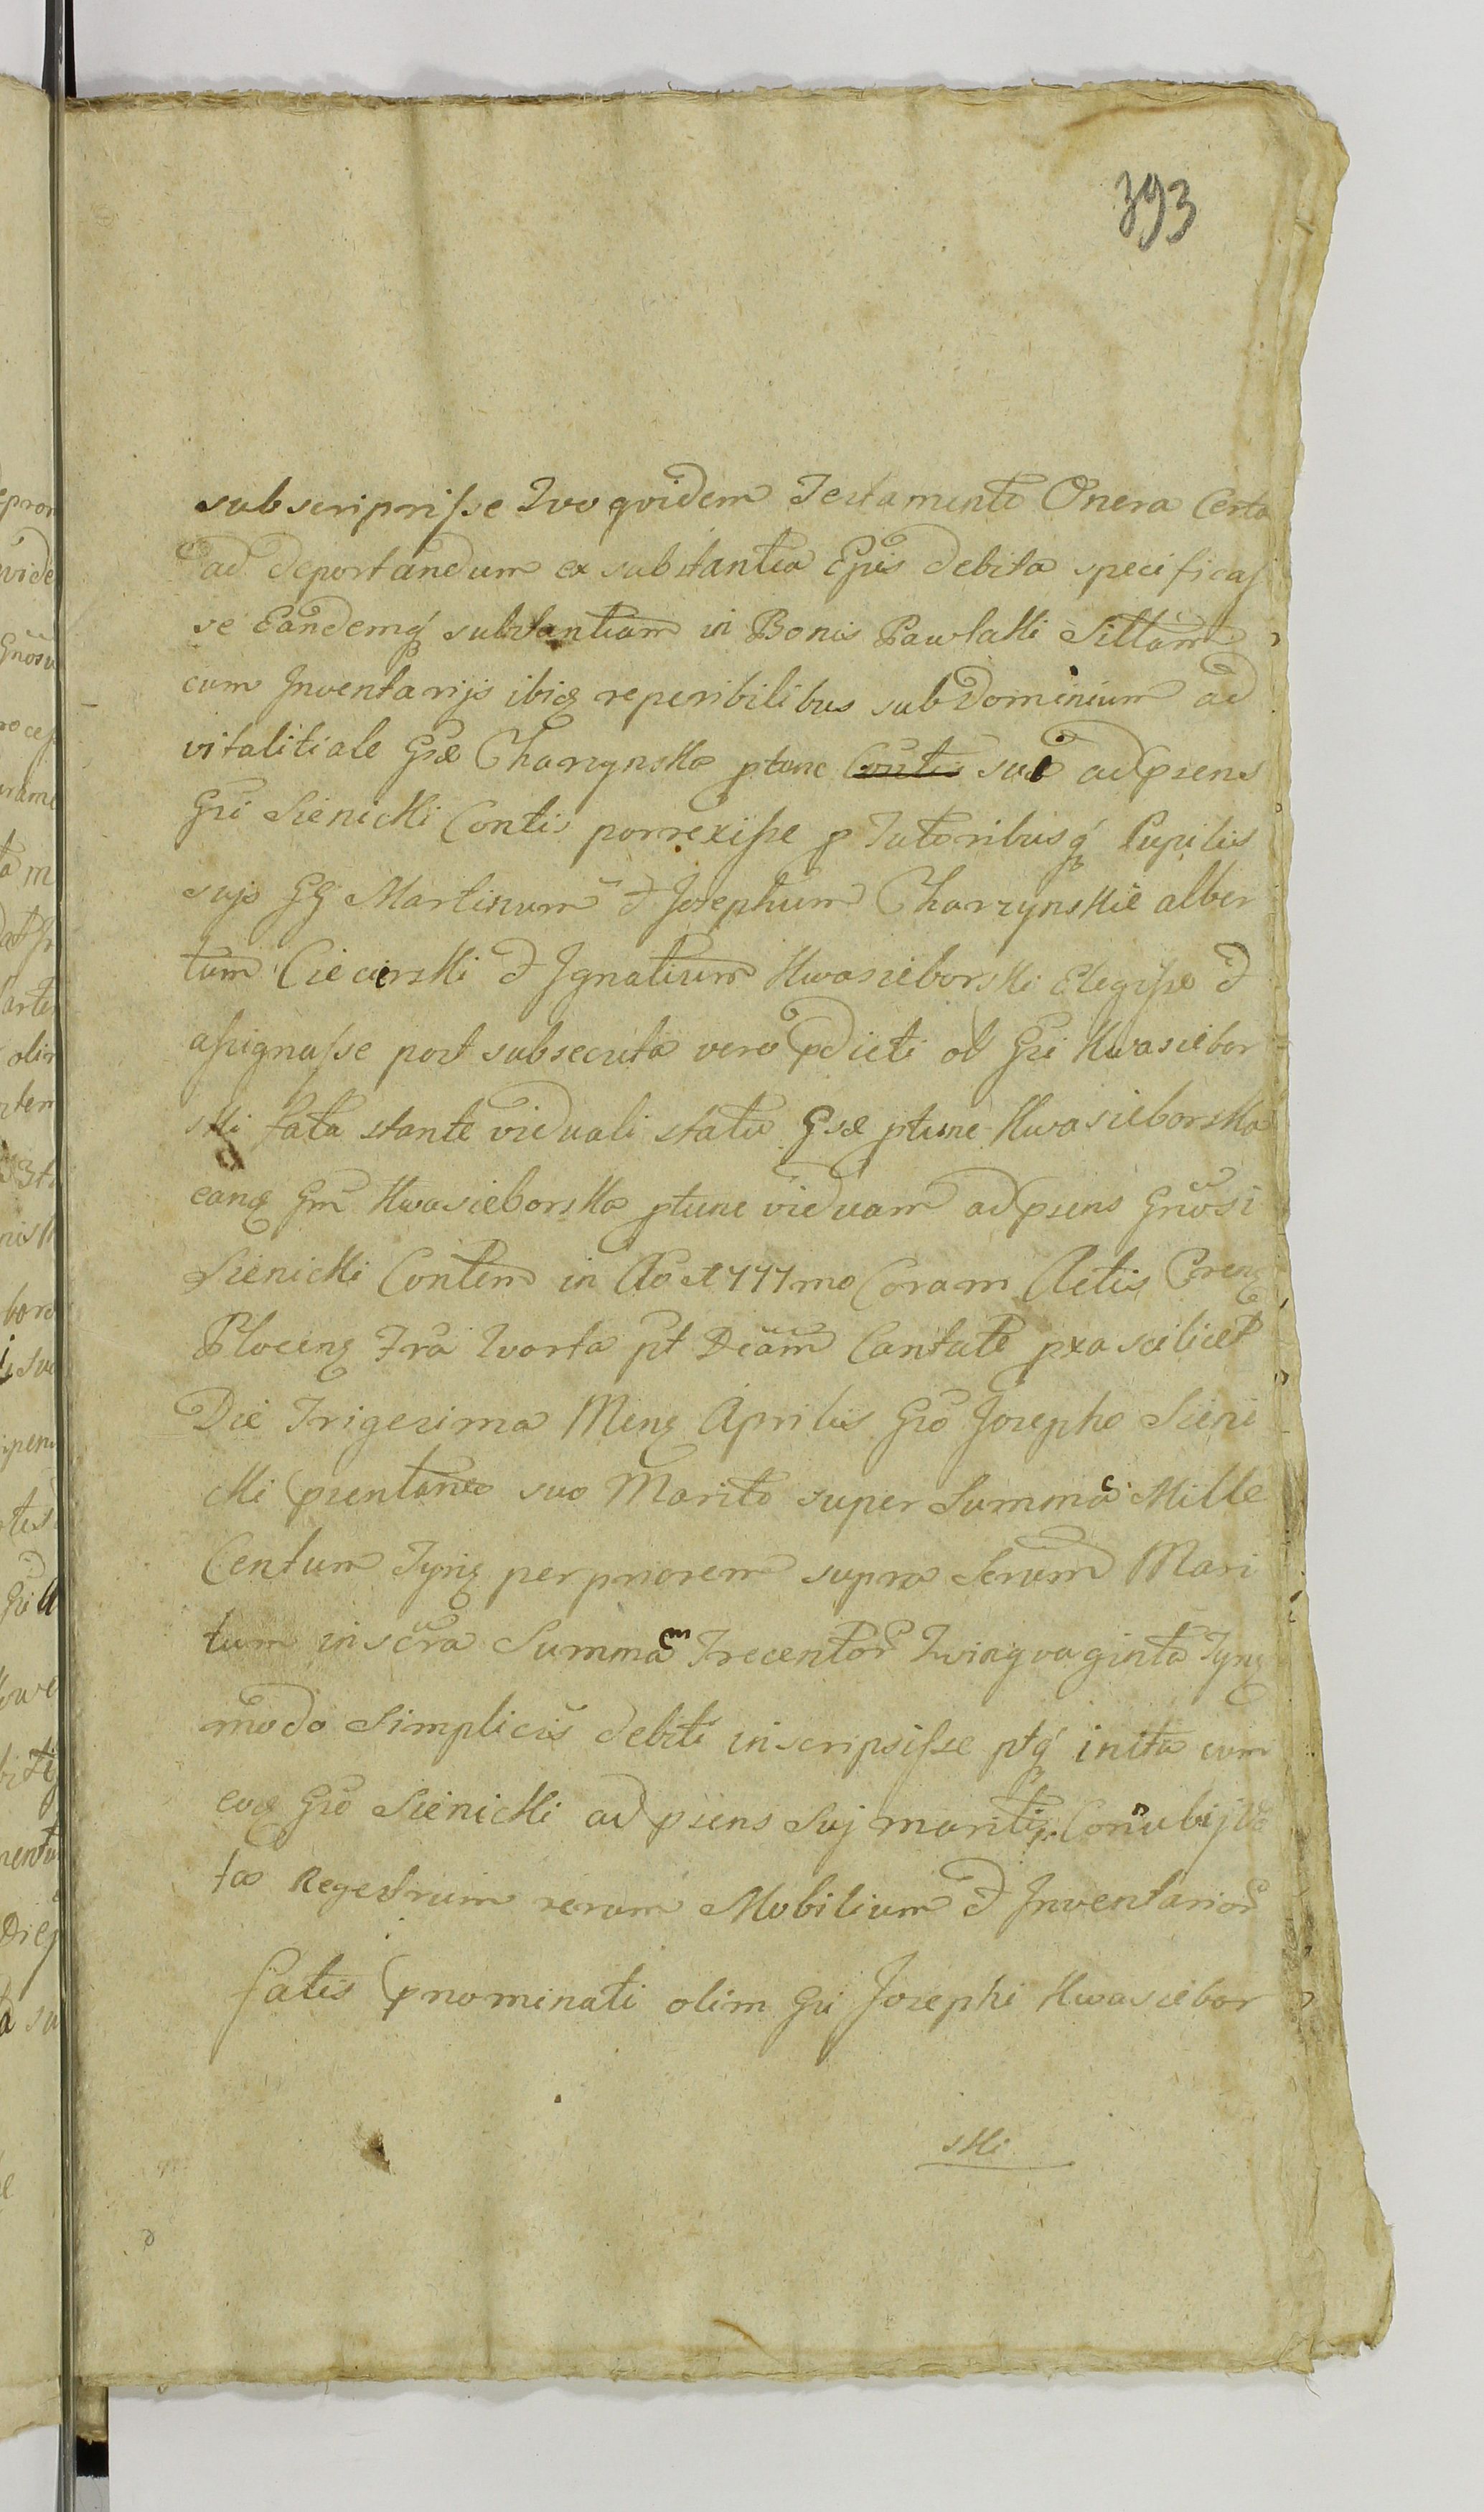 393
subscripsisse Quo quidem Testamento Onera Certa
ad deportandum ex substantia Ejus debita specificas
se Eandemq́ substantiam in Bonis Pawłakki Sittam
cum Inventarijs ibiq reperibilibus sub dominium ad
vitalitiale Gsæ Charzynska ptunc Contis sui ad psens
Gsi Sienickki Contis porrexisse p Tutoribusq́ Pupilis
sujs GG Martinum & Josephum Charzynskie alber
tum Ciecierski & Ignatium Kwasieborski Elegisse &
assignasse post subsecuta vero pdicti ol Gsi Kwasiebor
ski fata stante viduali statu Gsæ ptunc Kwasieborska
eanq Gm Kwasieborska ptunc viduam ad psens Gnosi
Sienickki Contem in Ao 1777mo Coram Actis Cren
Plocen Fra Qvarta pt Dcam Cantate pxa scilicet
Die Trigesima Mens Aprilis Gso Josepho Sieni
cki psentaneo suo Marito super Summa Mille
Centum Tyn per priorem supra Scrum Mari
tum inscra Summam Trecentor Qvinqvaginta Tyn
modo Simplicis debiti inscripsisse ptq́ inita cum
eoq Gso Sienickki ad psens Suj mariti Connubij Vo
ta Regestrum rerum Mobilium & Inventarior
fatis pnominati olim Gsi Josephi Kwasiebor
ski